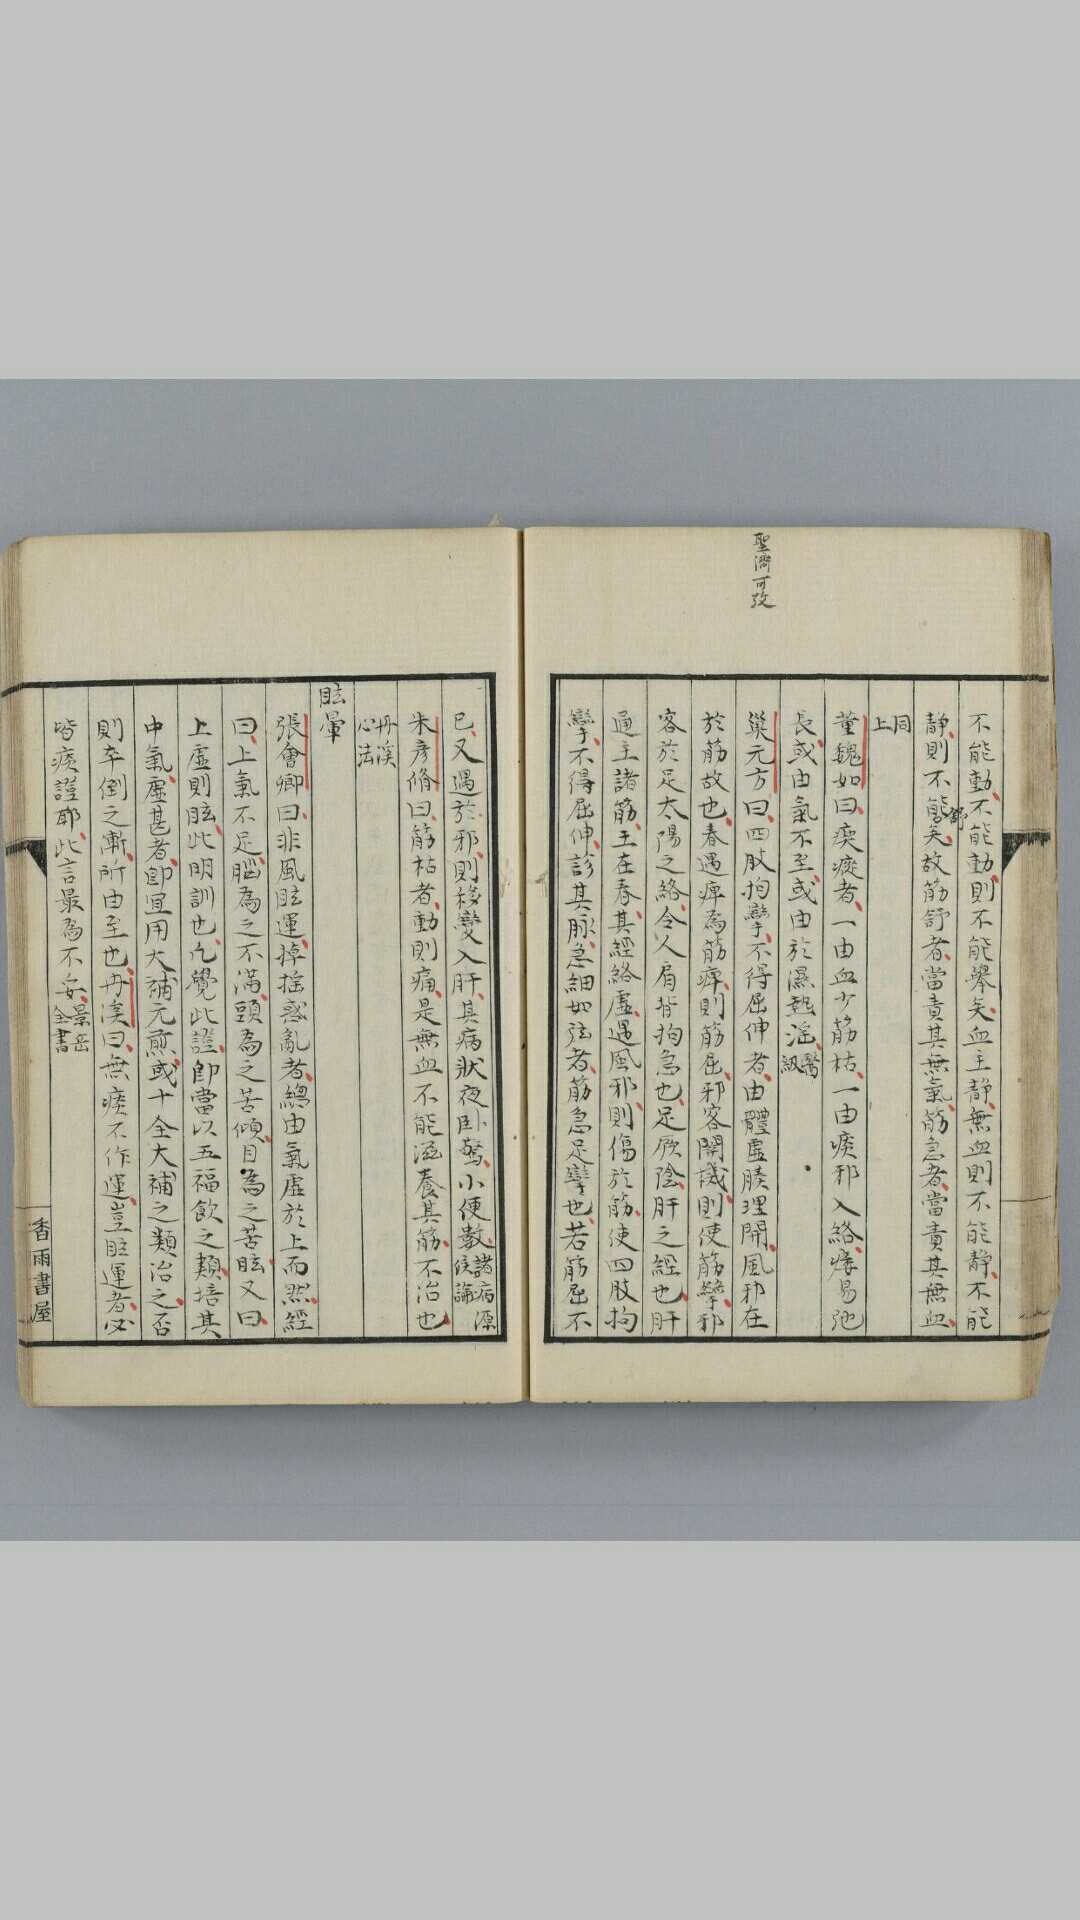 聖濟可攷
不能動不能動則不能舉矣血主静無血則不能静不能
静則不能舒矣故筋舒者當責其無氣筋急者當責其無血
同上
董魏如曰痿瘲者一由血少筋枯一由痰邪入絡瘈易弛
長或由氣不至或由於濕熱淫醫級
巢元方曰四肢拘攣不得屈伸者由體虛腠理開風邪在
於筋故也春遇痺為筋痺則筋屈邪客關機則使筋攣邪
客於足太陽之絡令人肩背拘急也足厥陰肝之經也肝
通主諸筋王在春其經絡虛遇風邪則傷於筋使四肢拘
攣不得屈伸診其脈急細如弦者筋急足攣也若筋屈不
已又遇於邪則移變入肝其病狀夜卧驚小便數諸病源候論
朱彥脩曰筋枯者動則痛是無血不能滋養其筋不治也
丹溪心法
眩暈
張會卿曰非風眩運掉搖惑亂者總由氣虛於上而然經
曰上氣不足腦為之不滿頭為之苦傾目為之苦眩又曰
上虛則眩此明訓也凡覺此證即當以五福飲之類培其
中氣虛甚者即宜用大補元煎或十全大補之類治之否
則卒倒之漸所由至也丹溪曰無痰不作運豈眩運者必
皆痰證耶此言最為不妥景岳全書
香雨書屋